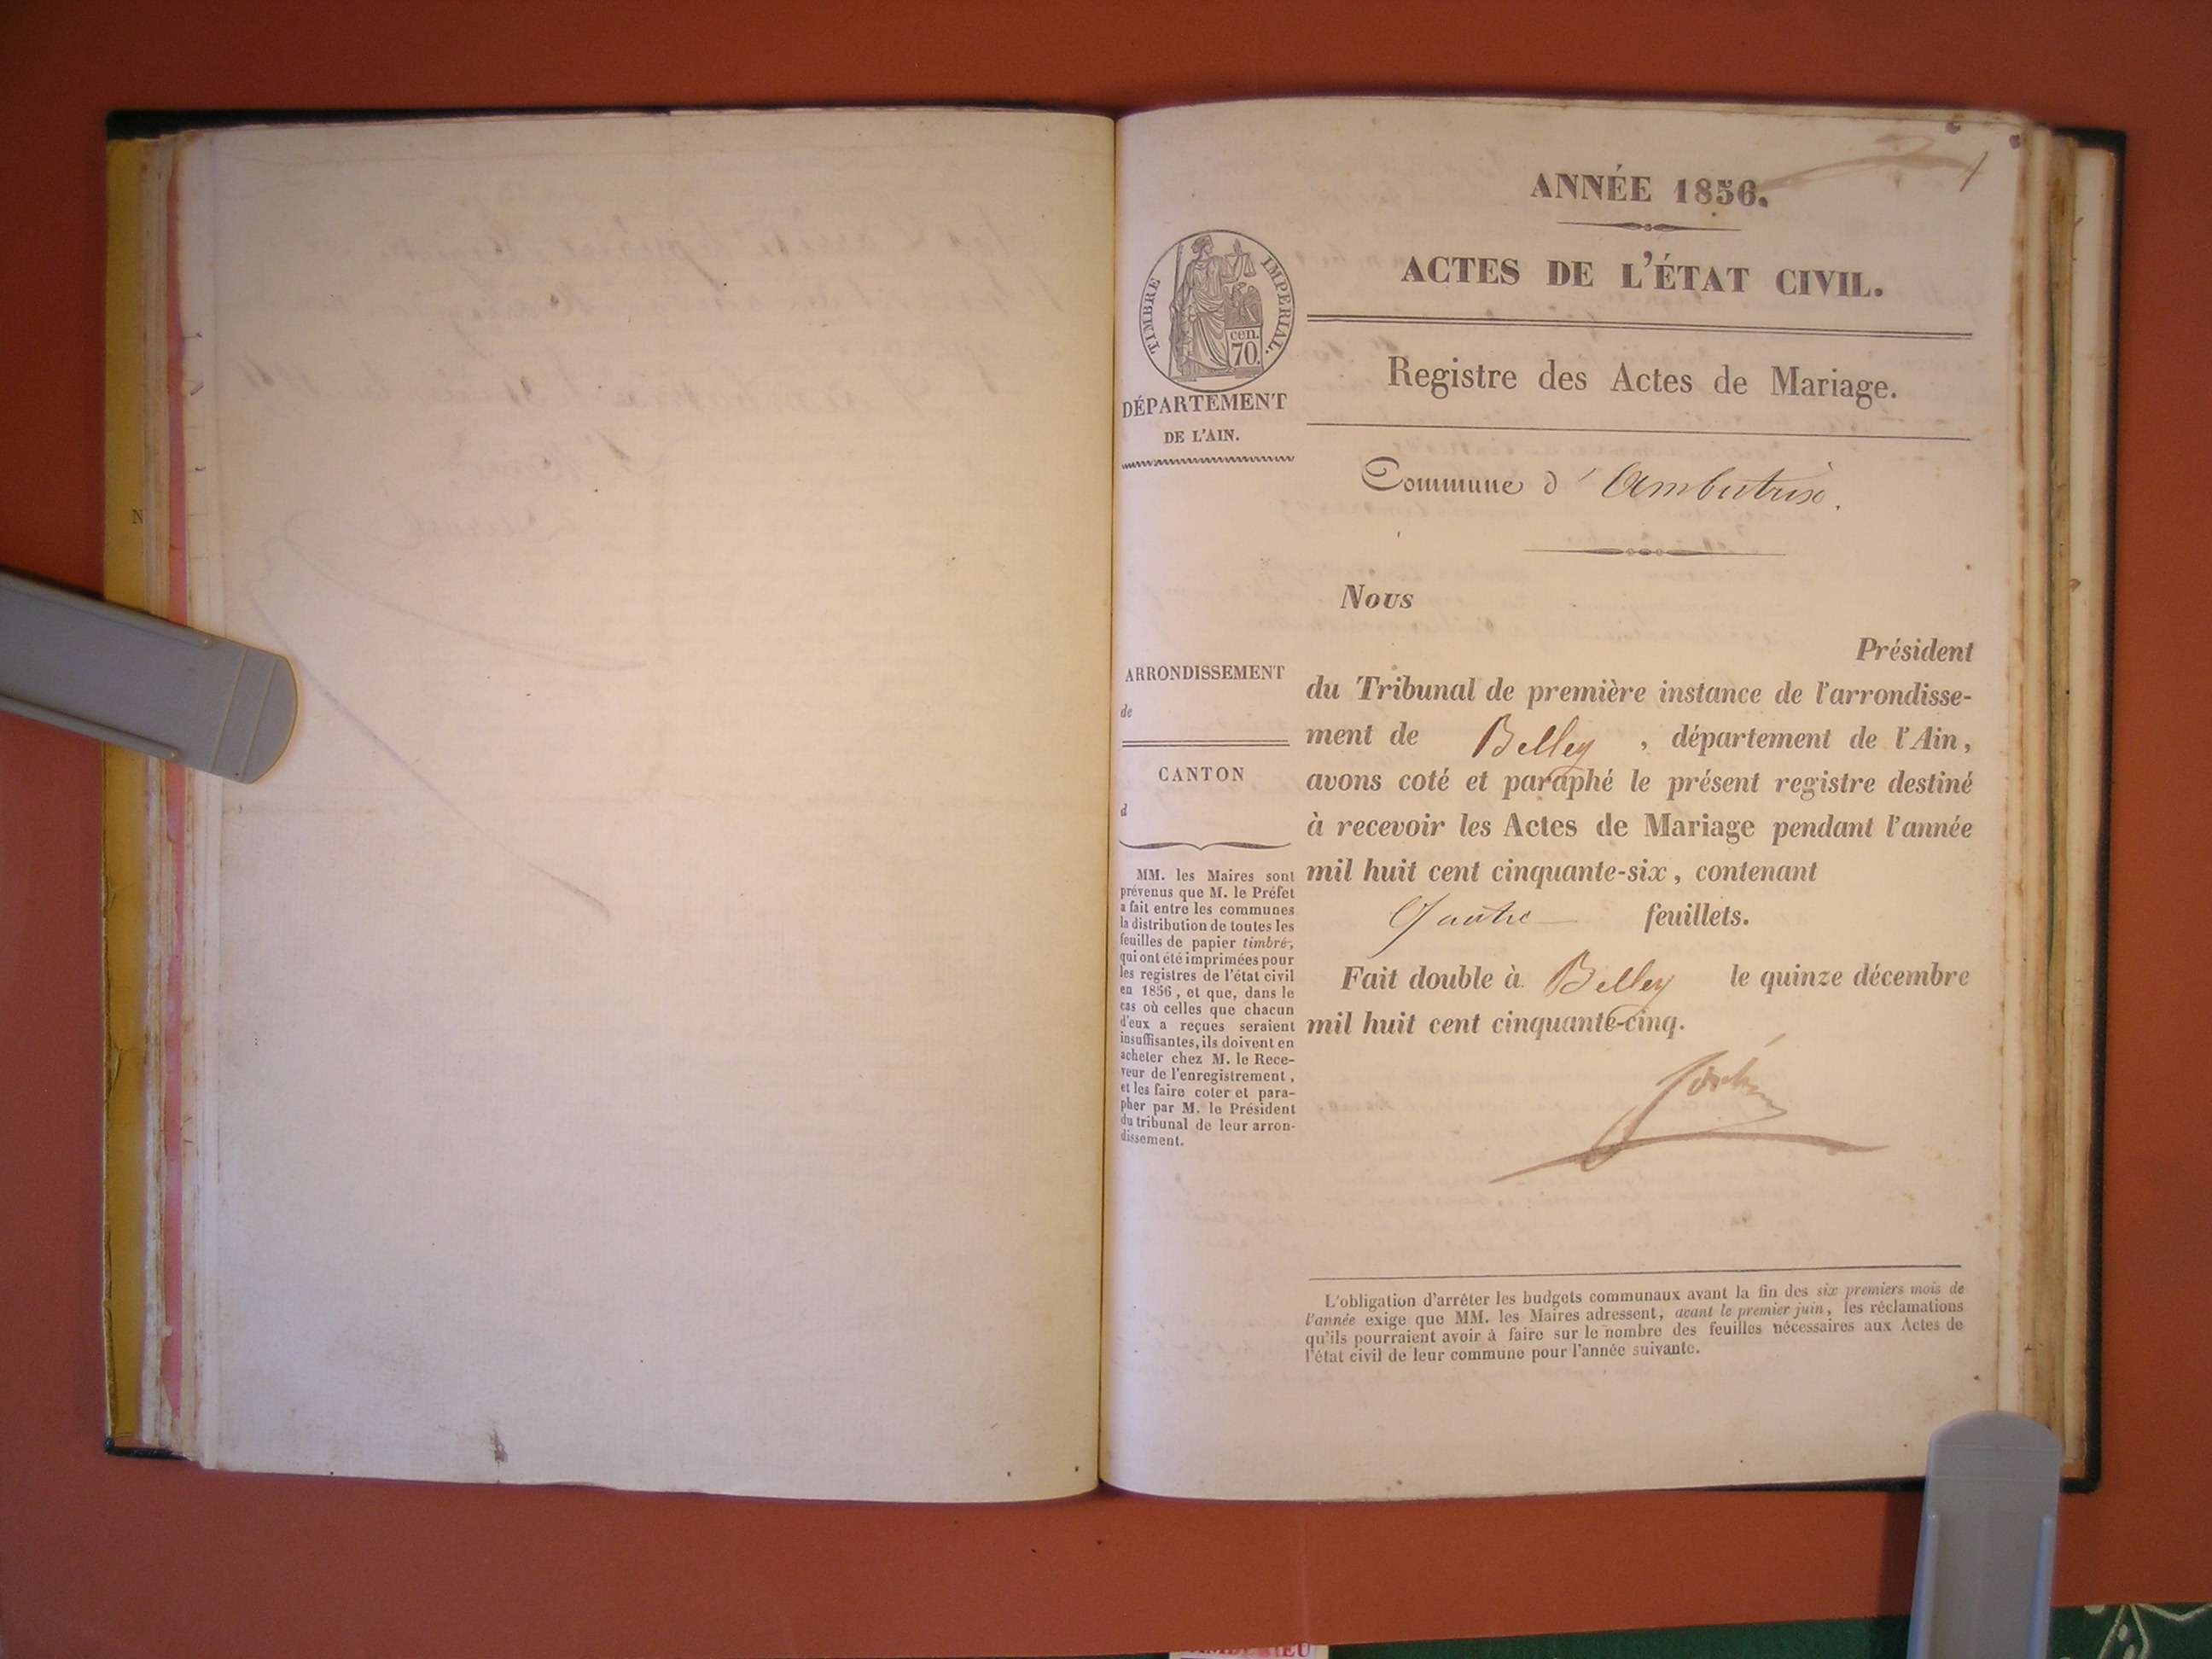 ANNÉE 1856.
1
ACTES DE L'ÉTAT CIVIL.
TIMBRE IMPERIAL.
cen.
70.
DÉPARTEMENT
DE L'AIN.
Registre des Actes de Mariage.
Commune d'Ambutrix.
Nous
Président
du Tribunal de première instance de l'arrondisse-
ment de Belley, département de l'Ain,
avons coté et paraphé le présent registre destiné
à recevoir les Actes de Mariage pendant l'année
mil huit cent cinquante-six, contenant
Quatre feuillets.
Fait double à Belley le quinze décembre
mil huit cent cinquante-cinq.
ARRONDISSEMENT
de
CANTON
d
MM. les Maires sont
prévenus que M. le Préfet
a fait entre les communes
la distribution de toutes les
feuilles de papier timbré,
qui ont été imprimées pour
les registres de l'état civil
en 1856, et que, dans le
cas où celles que chacun
d'eux a reçues seraient
insuffisantes, ils doivent en
acheter chez M. le Rece-
veur de l'enregistrement,
et les faire coter et para-
pher par M. le Président
du tribunal de leur arron-
dissement.
L'obligation d'arrêter les budgets communaux avant la fin des six premiers mois de
l'année exige que MM. les Maires adressent, avant le premier juin, les réclamations
qu'ils pourraient avoir à faire sur le nombre des feuilles nécessaires aux Actes de
l'état civil de leur commune pour l'année suivante.